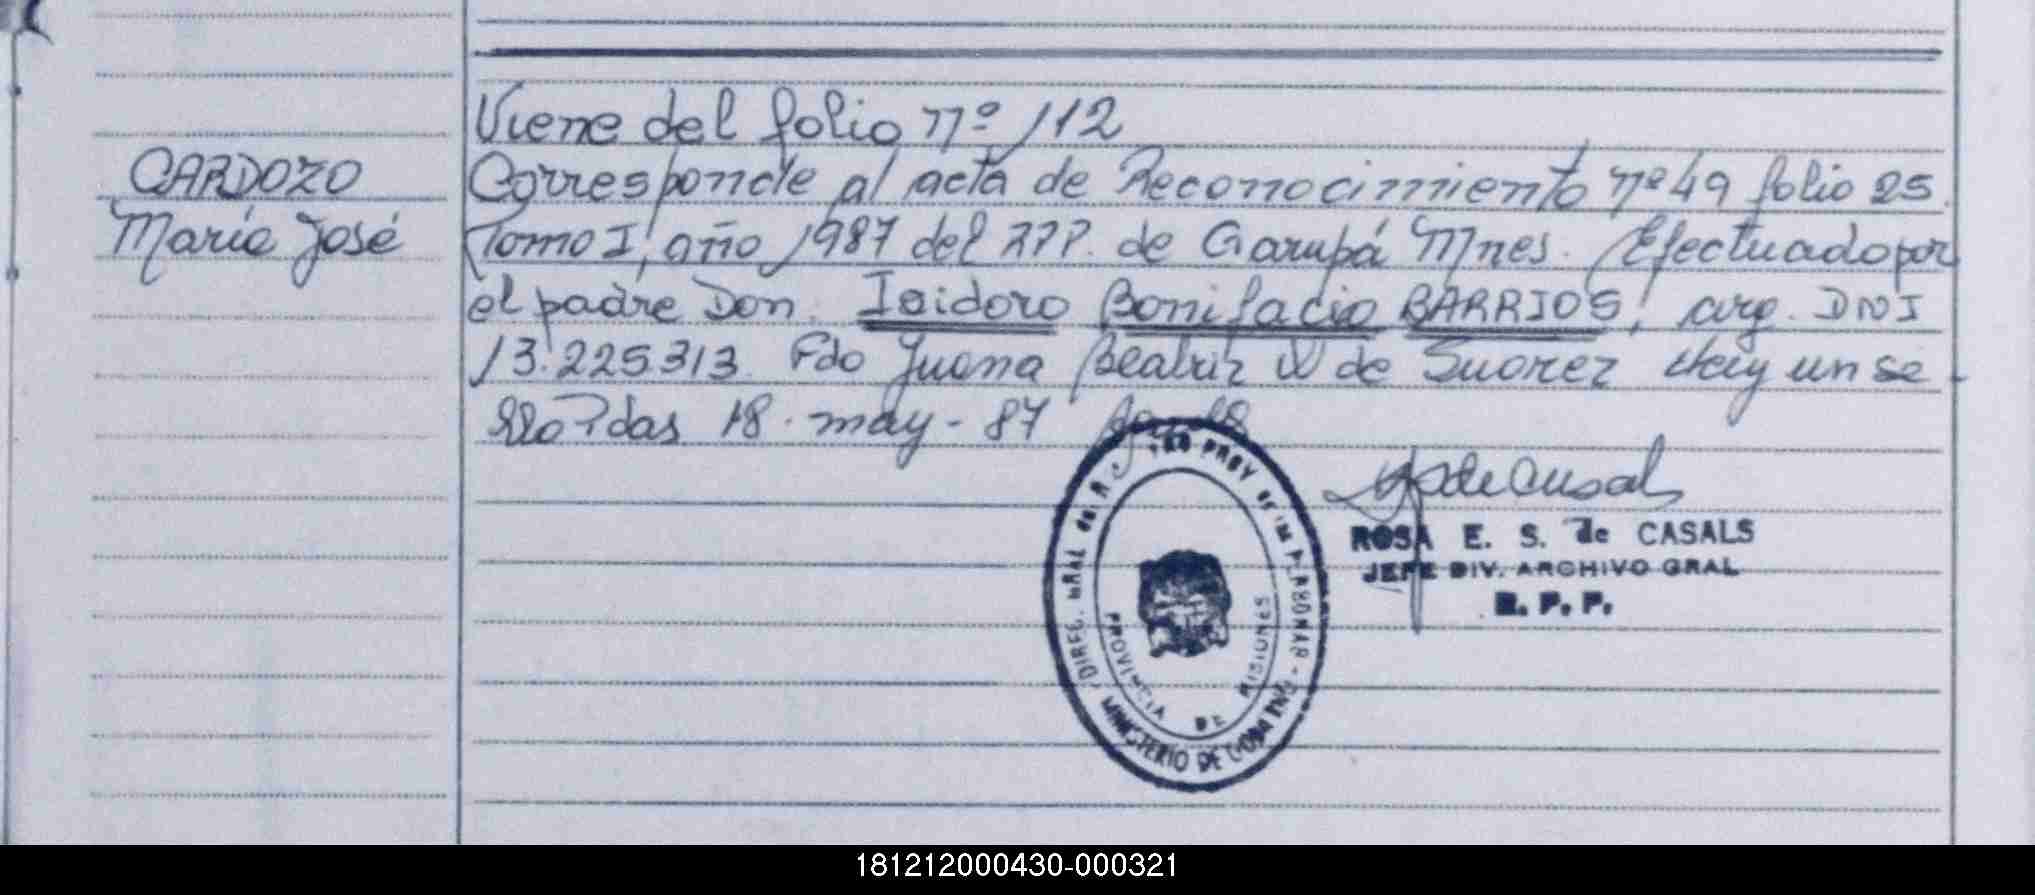 Viene del folio nº 112
CARDOZO
María José
Corresponde al acta de Reconocimiento nº 49 folio 25.
Tomo I, año 1987 del RPP. de Garupá Mnes. Efectuado por
el padre Don. Isidoro Bonifacio BARRIOS, arg. DNI
13.225.313. Fdo Juana Beatriz de Suarez Hay un se
llo Pdas 18 - may - 87
ROSA E. S. de CASALS
JEFE DIV. ARCHIVO GRAL
R. P. P.
DIREC. GRAL del R. PROV de las PERSONAS
PROVINCIA DE MISIONES
MINISTERIO DE GOB
181212000430-000321